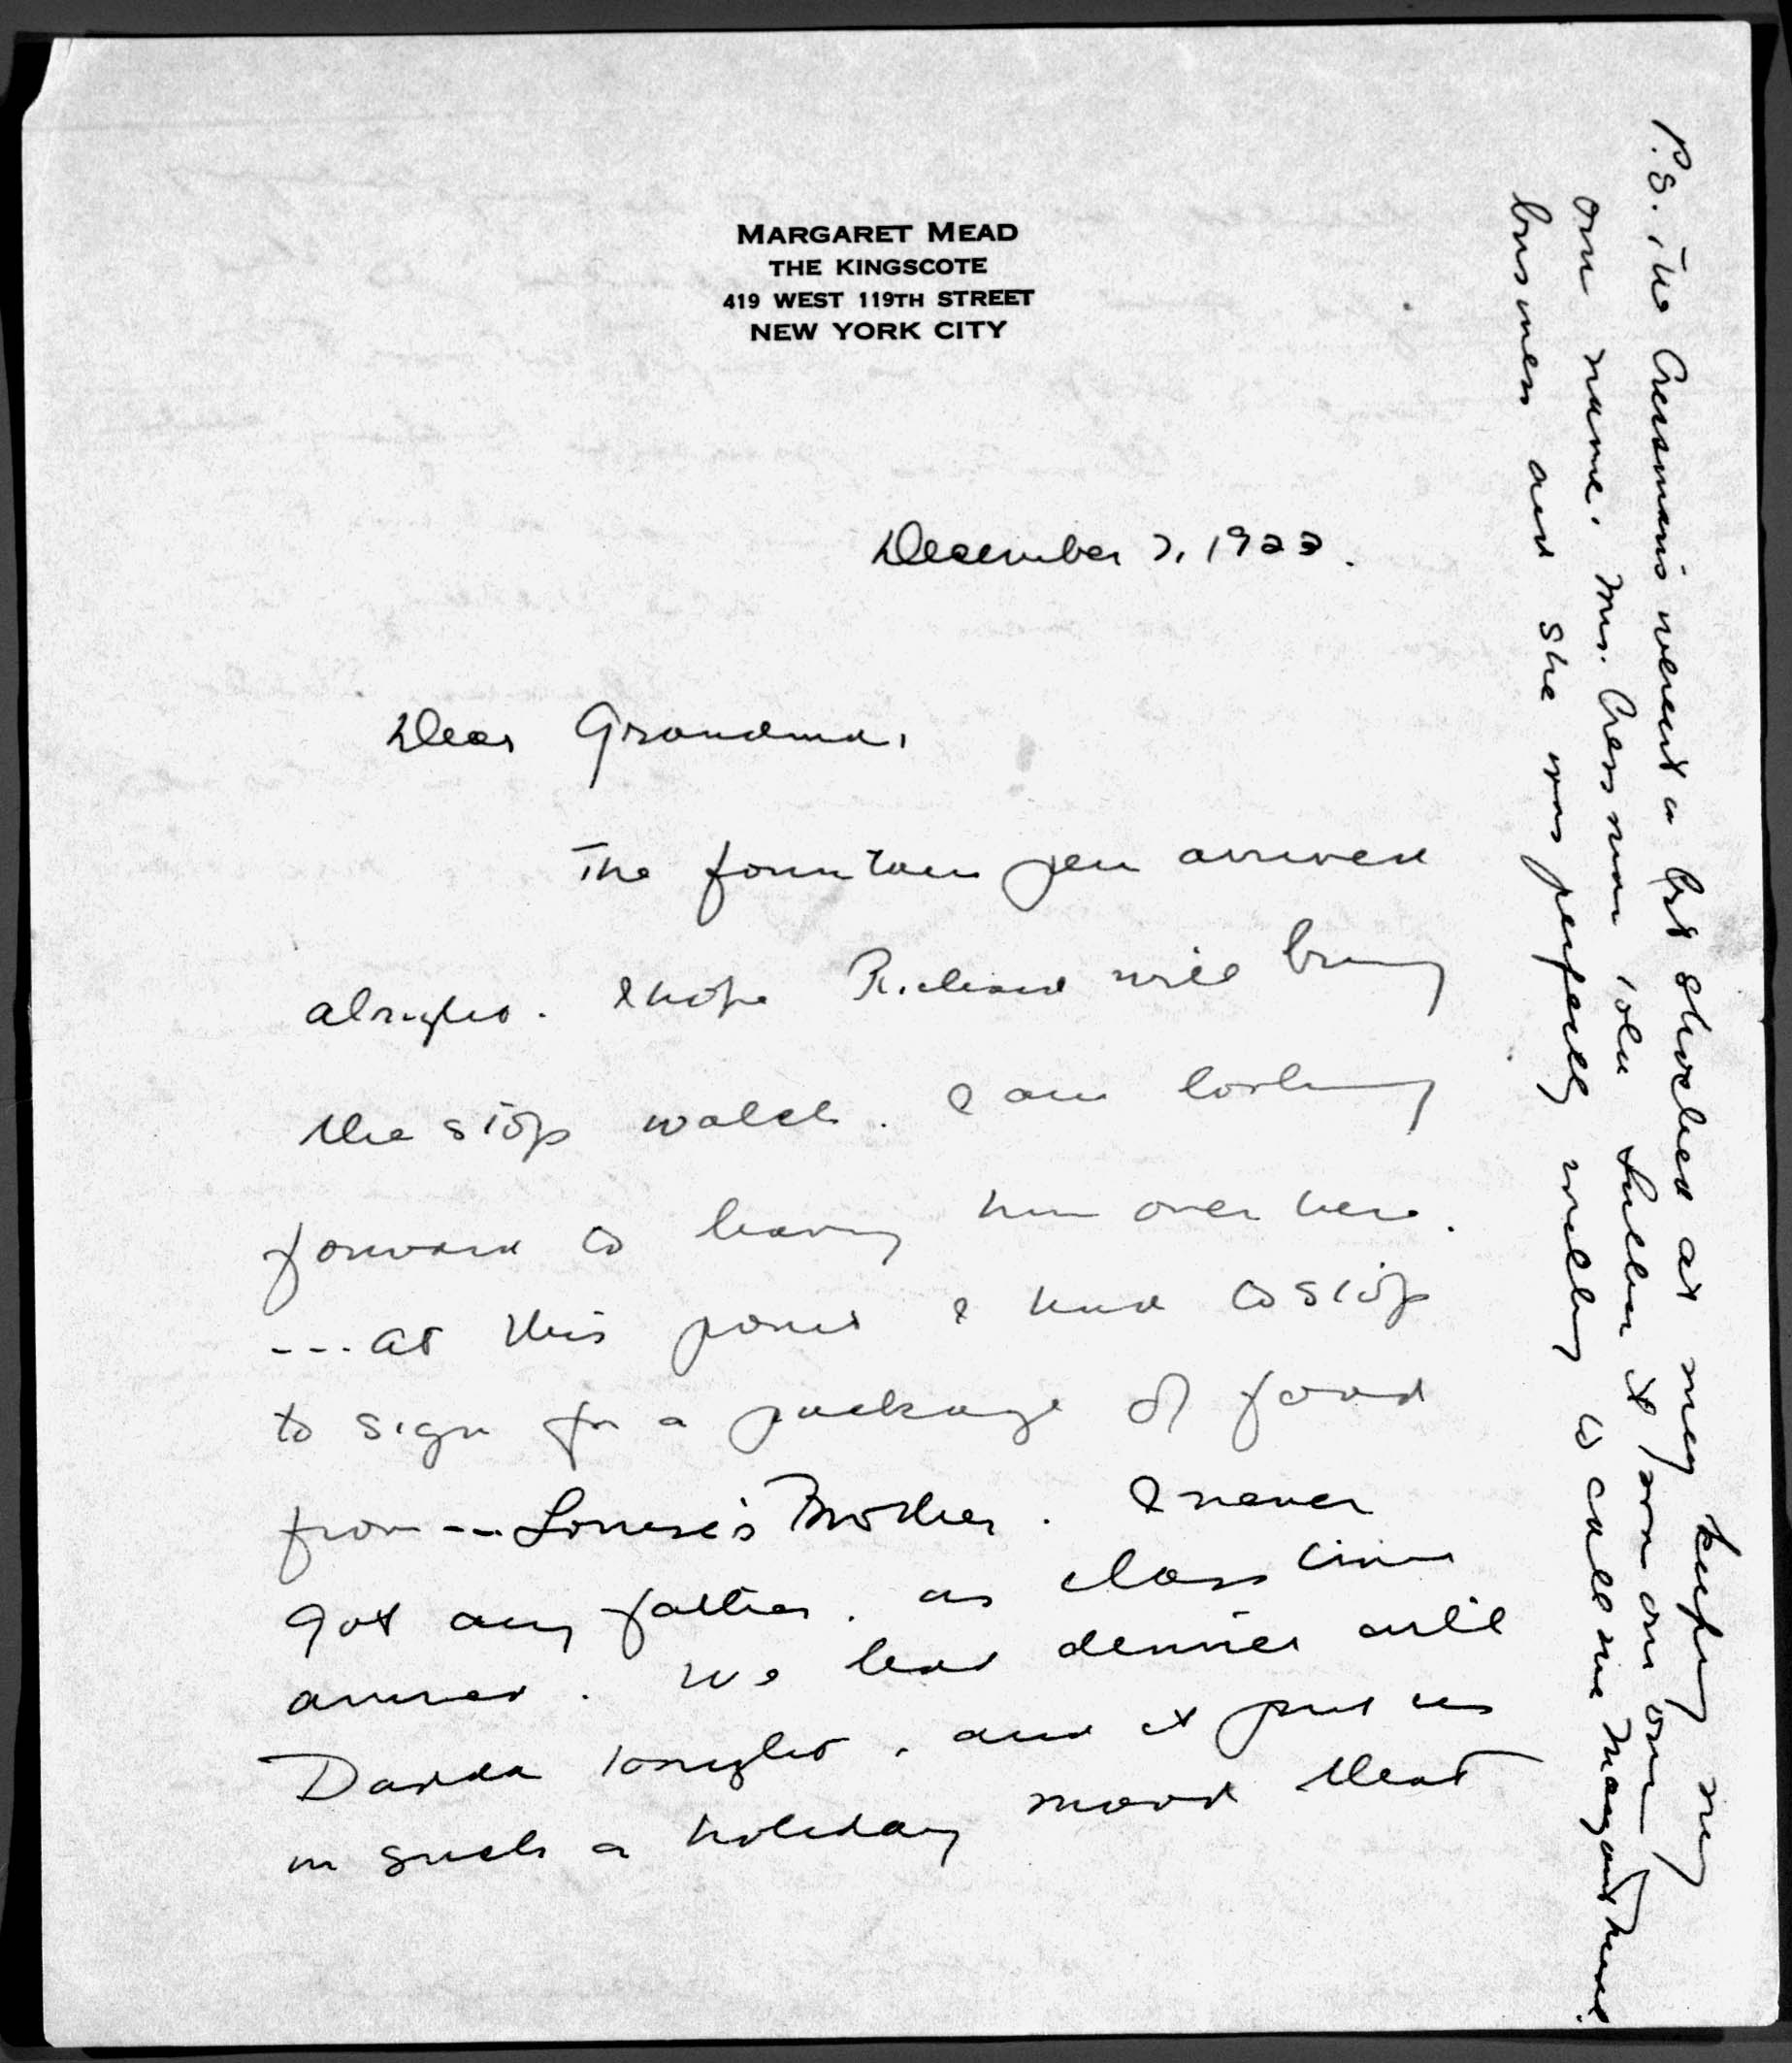 MARGARET MEAD
THE KINGSCOTE
419 WEST 119TH STREET
NEW YORK CITY
December 7, 1923.
Dear Grandma,
The fountain pen arrived
alright. I hope Richard will bring
the stop watch. I am looking
forward to having him over here.
---at this point I had to stop
to sign for a package of food
from -- Louise's Mother. I never
got any father, as class time
arrived. We had dinner with
Dadda tonight, and it put us
in such a holiday mood that
P.S. The Cressman's weren't a bit shocked at my keeping my
own name. Mrs. Cressman told Luther it was our own
business and she was perfectly willing to call me Margaret Mead.